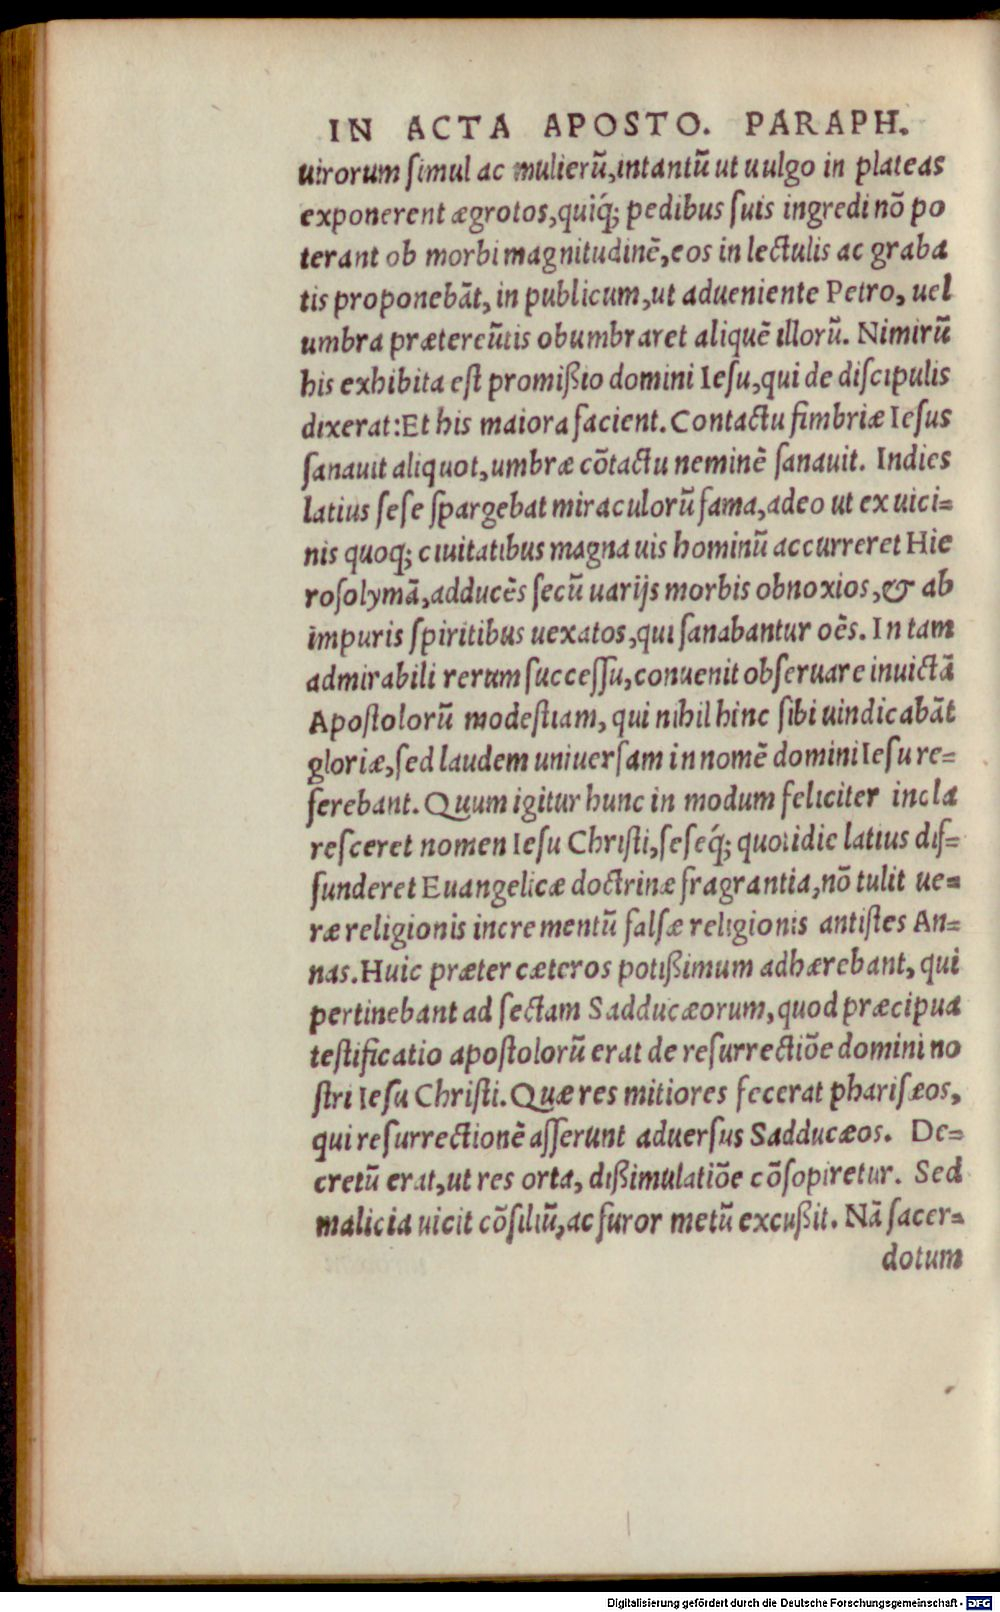 IN ACTA APOSTO. PARAPH.
uirorum ſimul ac mulierũ,intantũ ut uulgo in plateas
exponerent ægrotos,quiq́; pedibus ſuis ingredi nõ po
terant ob morbi magnitudinẽ,eos in lectulis ac graba
tis proponebãt, in publicum,ut adueniente Petro, uel
umbra prætereũtis obumbraret aliquẽ illorũ. Nimirũ
his exhibita eſt promißio domini Ieſu,qui de diſcipulis
dixerat:Et his maiora facient. Contactu fimbriæ Ieſus
ſanauit aliquot,umbræ cõtactu neminẽ ſanauit. Indies
latius ſeſe ſpargebat miraculorũ fama,adeo ut ex uici=
nis quoq; ciuitatibus magna uis hominũ accurreret Hie
roſolymã,adducẽs ſecũ uarijs morbis obnoxios,& ab
impuris ſpiritibus uexatos,qui ſanabantur oẽs. In tam
admirabili rerum ſucceſſu,conuenit obſeruare inuictã
Apoſtolorũ modeſtiam, qui nihil hinc ſibi uindicabãt
gloriæ,ſed laudem uniuerſam in nomẽ domini Ieſu re=
ferebant. Quum igitur hunc in modum feliciter incla
reſceret nomen Ieſu Chriſti,ſeſeq́; quotidie latius dif=
funderet Euangelicæ doctrinæ fragrantia,nõ tulit ue=
ræ religionis incrementũ falſæ religionis antiſtes An=
nas.Huic præter cæteros potißimum adhærebant, qui
pertinebant ad ſectam Sadducæorum,quod præcipua
teſtificatio apoſtolorũ erat de reſurrectiõe domini no
ſtri Ieſu Chriſti.Quæ res mitiores fecerat phariſæos,
qui reſurrectionẽ aſſerunt aduerſus Sadducæos. De=
cretũ erat,ut res orta, dißimulatiõe cõſopiretur. Sed
malicia uicit cõſiliũ,ac furor metũ excußit. Nã ſacer=
dotum
Digitalisierung gefördert durch die Deutsche Forschungsgemeinschaft - DFG